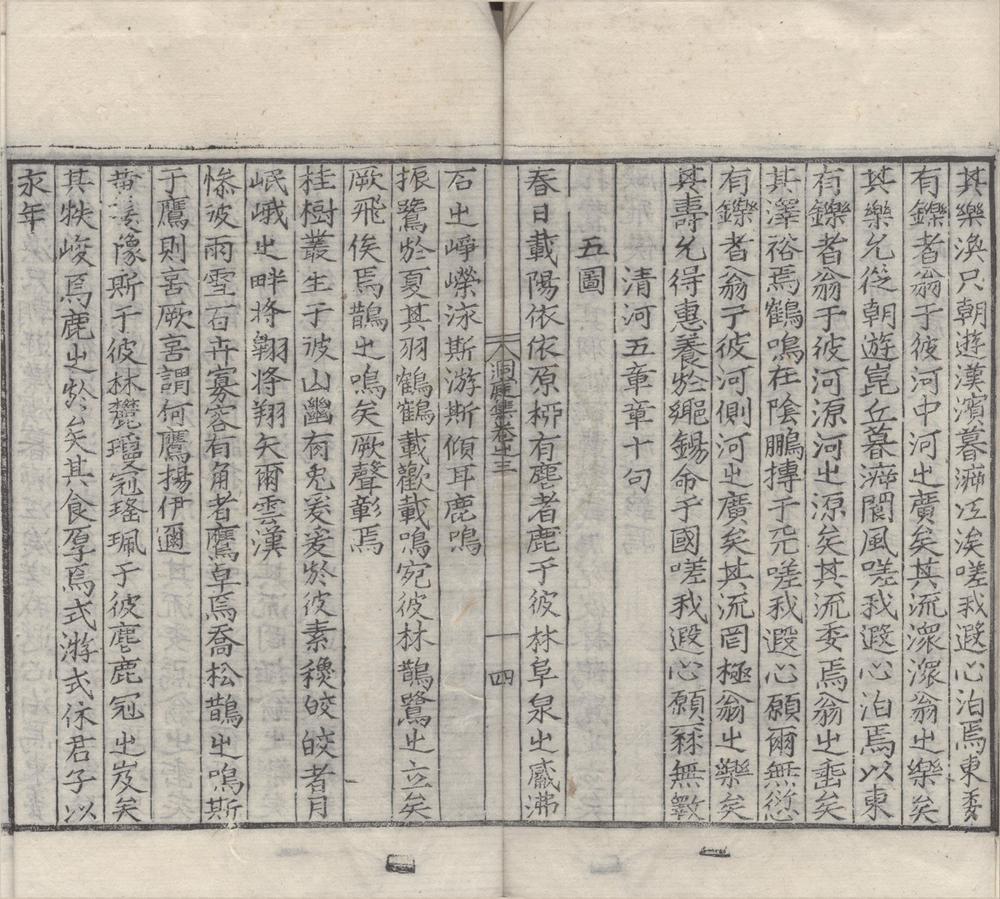 其樂渙只朝遊漢濱暮游江涘嗟我遐心泊焉東委
有鑠者翁于彼河中河㞢廣矣其流潀潀翁㞢樂矣
其樂允從朝遊崑丘暮游閬風嗟我遐心泊焉以東
有鑠者翁于彼河源河㞢源矣其流委焉翁㞢壽矣
其澤裕焉鶴鳴在陰鵬摶于天嗟我遐心願爾無愆
有鑠者翁于彼河側河㞢廣矣其流罔極翁㞢樂矣
其壽允得惠養於鄉錫命于國嗟我遐心願爾無斁
清河五章章十句
五圖
春日載陽依依原柳有麀者鹿于彼林阜泉㞢觱沸
洞庭集卷之三
四
石㞢崢嶸泳斯游斯傾耳鹿鳴
振鷺於夏其羽鶴鶴載歡載鳴宛彼林鵲鷺㞢立矣
厥飛俟焉鵲㞢鳴矣厥聲彰焉
桂樹叢生于彼山幽有兔爰爰於彼素穠皎皎者月
岷峨㞢畔將翱將翔矢爾雲漢
慘彼雨雪百卉寡容有角者鷹卓焉喬松鵲㞢鳴斯
于鷹則喜厥喜謂何鷹揚伊邇
于彼林麓瑥冠瑤珮于彼麀鹿冠㞢岌矣
其帙峻焉鹿㞢於矣其食厚焉式游式休君子以
永年